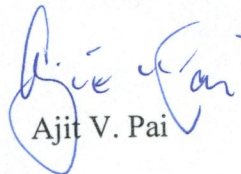 Ajit V. Pai